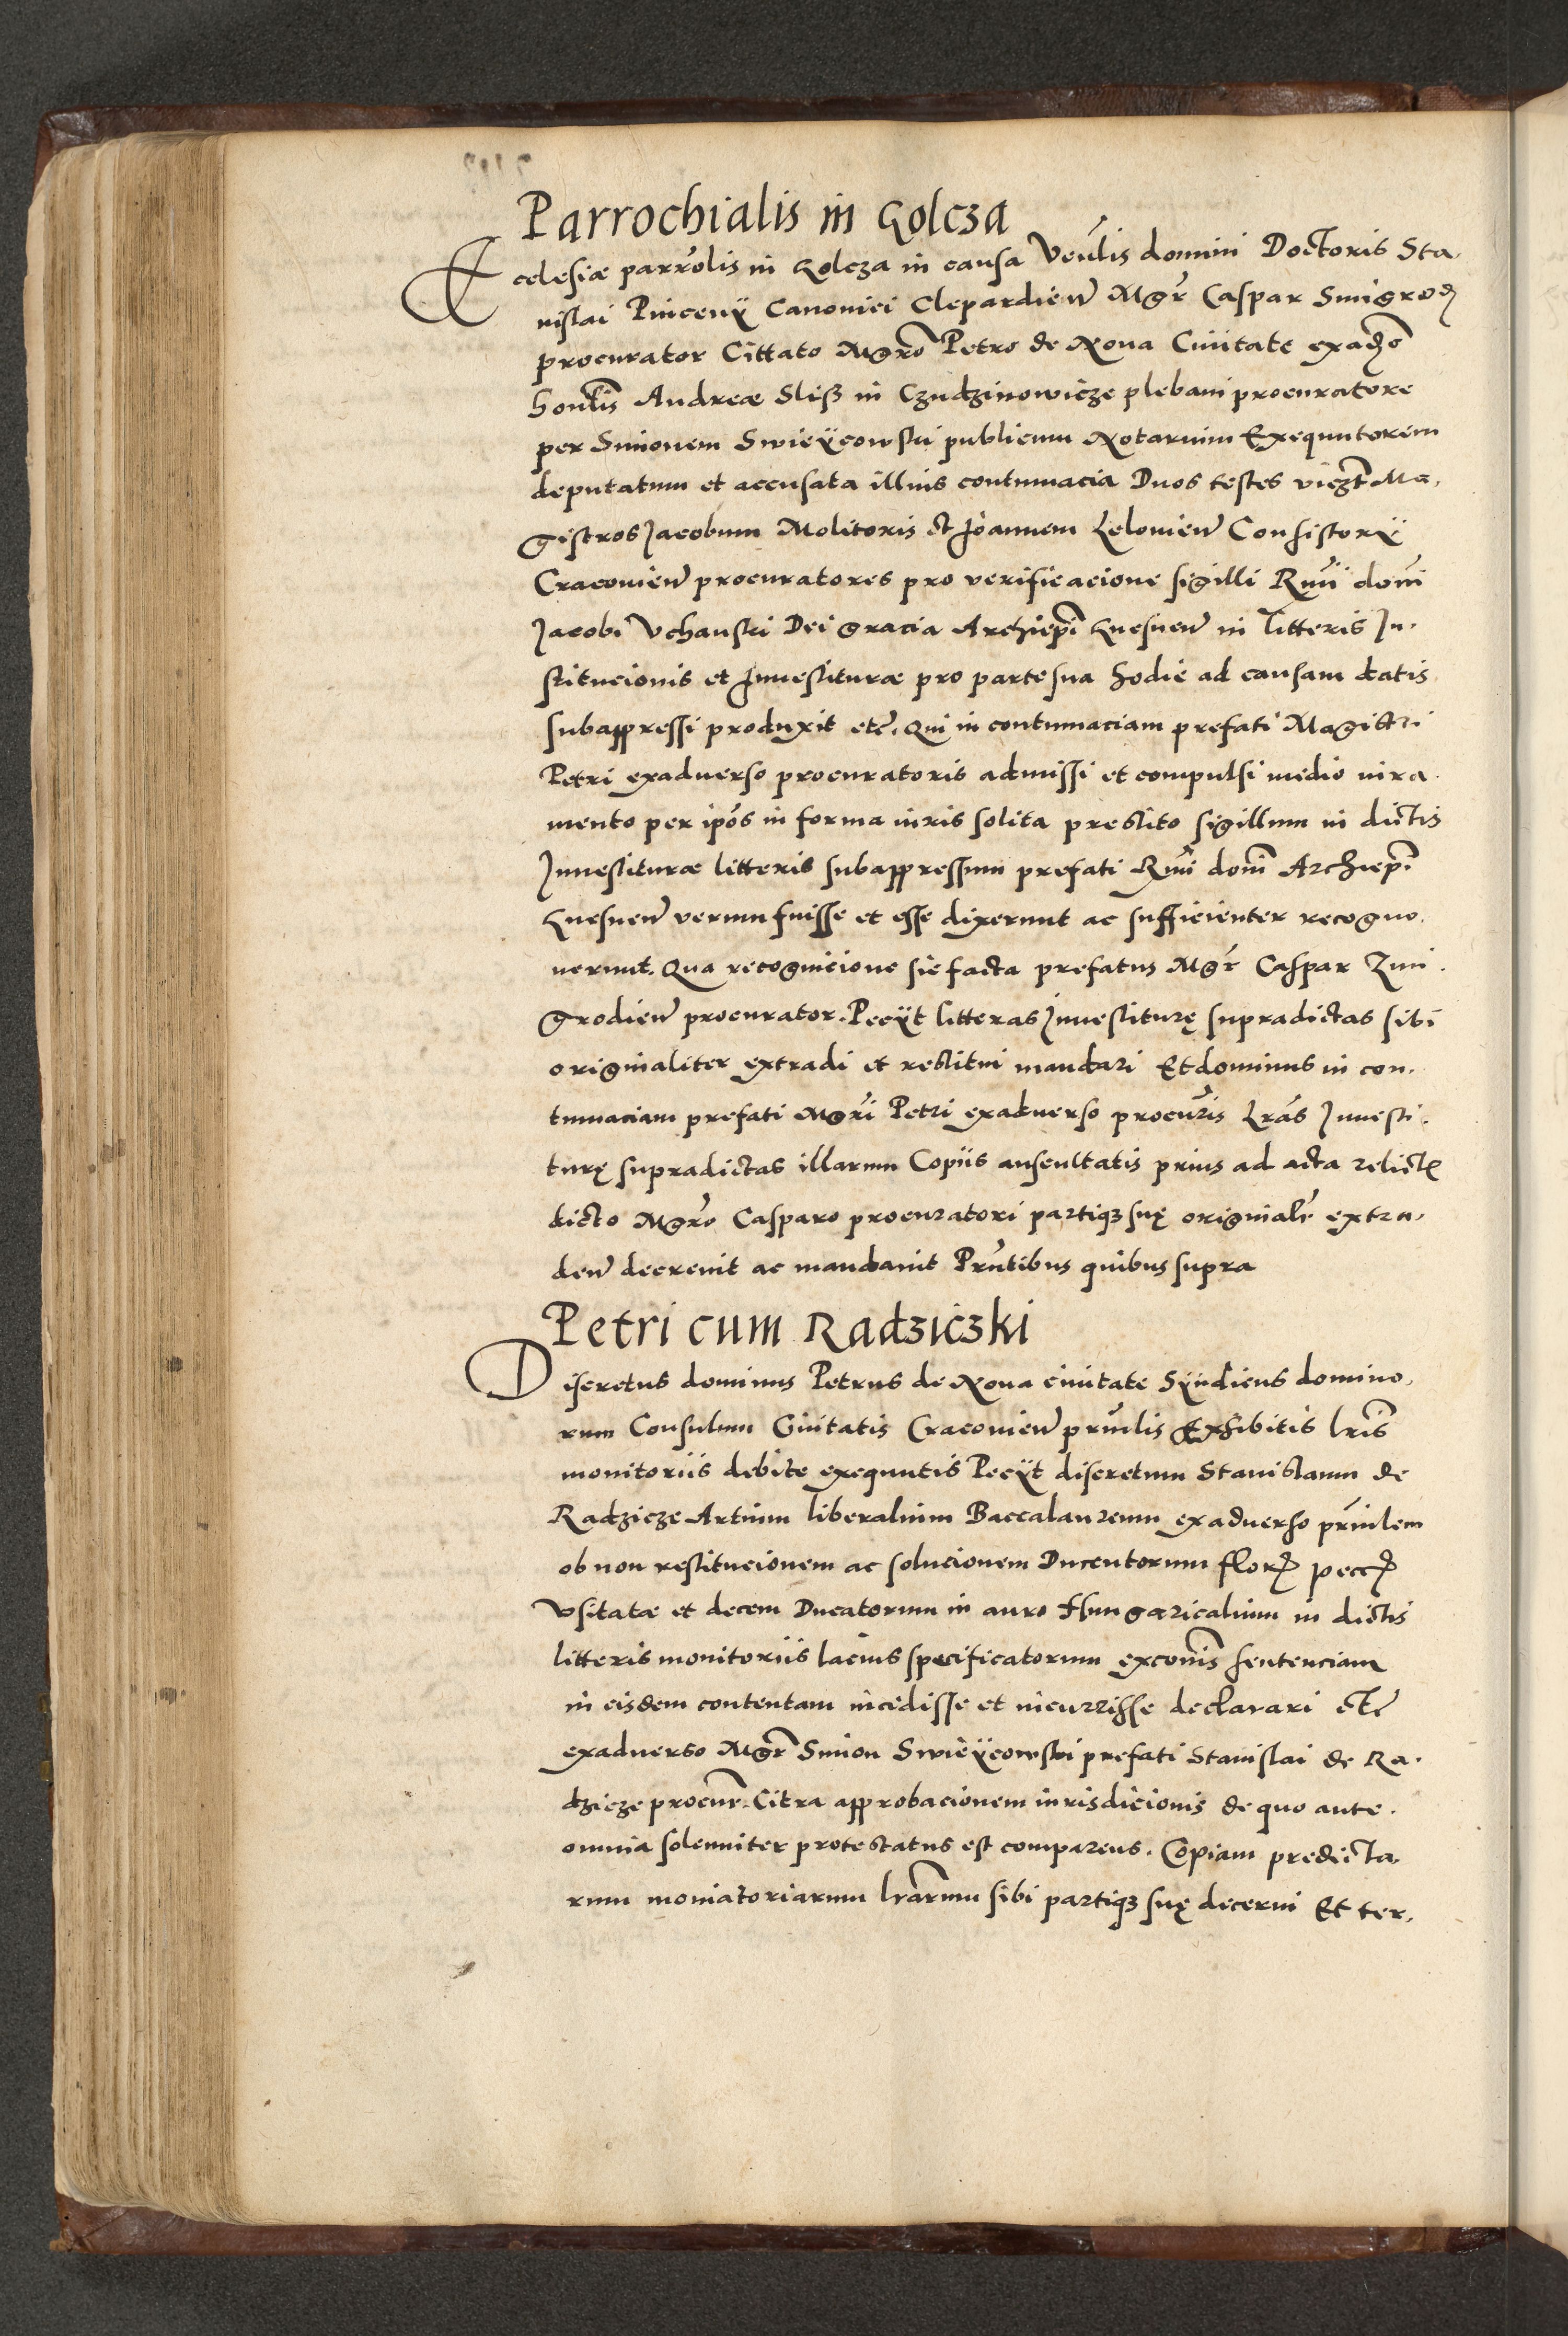 Parrochialis in Golcza
Ecclesiæ parrolis in Golcza in causa Venlis domini Doctoris Sta,
nislai Pinceny Canonici Clepardien Mgr Caspar Smigrod
procurator Cittato Mgro Petro de Noua Ciuitate exadso
honlis Andreæ Slisz in Czudzinowicze plebani procuratore
per Simonem Swieÿcowski publicum Notarium Exequutorem
deputatum et accusata illius contumacia Duos testes viczt Ma,
gistros Jacobum Molitoris et Joannem Lelowien Consistorÿ
Cracouien procuratores pro verificacione sigilli Rmi domi
Jacobi Vchanski Dei gracia Archiepi Gnesnen in litteris In,
stitucionis et Inuestituræ pro parte sua hodie ad causam datis
subappressi produxit etc. Qui in contumaciam prefati Magistri
Petri exaduerso procuratoris admissi et compulsi medio iura,
mento per ipos in forma iuris solita prestito sigillum in dictis
Inuestituræ litteris subappressum prefati Rmi domi Archiepi
Gnesnen verum fuisse et esse dixerunt ac sufficienter recogno,
uerunt. Qua recognicione sic facta prefatus Mgr Caspar Zmi,
grodien procurator. Pecÿt litteras Inuestiturę supradictas sibi
originaliter extradi et restitui mandari Et dominus in con,
tumaciam prefati Mgri Petri exaduerso procuris Lras Inuesti,
turę supradictas illarum Copiis auscultatis prius ad acta relict
dicto Mgro Casparo procuratori partiq3 suę originalr extra,
den decreuit ac mandauit Prntibus quibus supra
Petri cum Radziczki
Discretus dominus Petrus de Noua ciuitate Sÿndicus domino,
rum Consulum Ciuitatis Cracouien prnlis Exhibitis lris
monitoriis debite exequutis Pecÿt discretum Stanislaum de
Radzicze Artium liberalium Baccalaureum exaduerso prinlem
ob non restitucionem ac solucionem Ducentorum flor pecc
vsitatæ et decem Ducatorum in auro Hungaricalium in dictis
litteris monitoriis lacius specificatorum exconis sentenciam
in eisdem contentam incidisse et incurrisse declarari etc
exaduerso Mgr Simon Swieÿcowski prefati Stanislai de Ra,
dzicze procur. Citra approbacionem iurisdicionis de quo ante,
omnia solenniter protestatus est comparens. Copiam predicta,
rum moniatoriarum lrarum sibi partiq3 suę decerni Et ter,